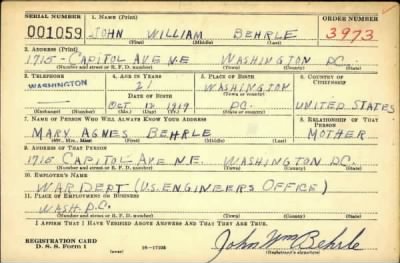 SERIAL NUMBER 1. NAME (Print) ORDER NUMBER
001059 JOHN WILLIAM BEHRLE 3973
(First) (Middle) (Last)
2. ADDRESS (Print)
1715 - CAPITOL AVE N.E WASHINGTON DC.
(Number and street or R. F. D. number) (Town) (County) (State)
3. TELEPHONE 4. AGE IN YEARS 5. PLACE OF BIRTH 6. COUNTRY OF CITIZENSHIP
WASHINGTON 21 WASHINGTON
DATE OF BIRTH (Town or county)
OCT 12 1919 DC. UNITED STATES
(Exchange) (Number) (Mo.) (Day) (Yr.) (State or country)
7. NAME OF PERSON WHO WILL ALWAYS KNOW YOUR ADDRESS 8. RELATIONSHIP OF THAT PERSON
MARY AGNES BEHRLE MOTHER
(Mr., Mrs., Miss) (First) (Middle) (Last)
9. ADDRESS OF THAT PERSON
1715 CAPITOL AVE N.E. WASHINGTON DC.
(Number and street or R. F. D. number) (Town) (County) (State)
10. EMPLOYER'S NAME
WAR DEPT (U.S. ENGINEERS OFFICE)
11. PLACE OF EMPLOYMENT OR BUSINESS
WASH. D.C.
(Number and street or R. F. D. number) (Town) (County) (State)
I AFFIRM THAT I HAVE VERIFIED ABOVE ANSWERS AND THAT THEY ARE TRUE.
REGISTRATION CARD
D. S. S. Form 1 (over) 16-17105 John Wm Behrle
(Registrant's signature)